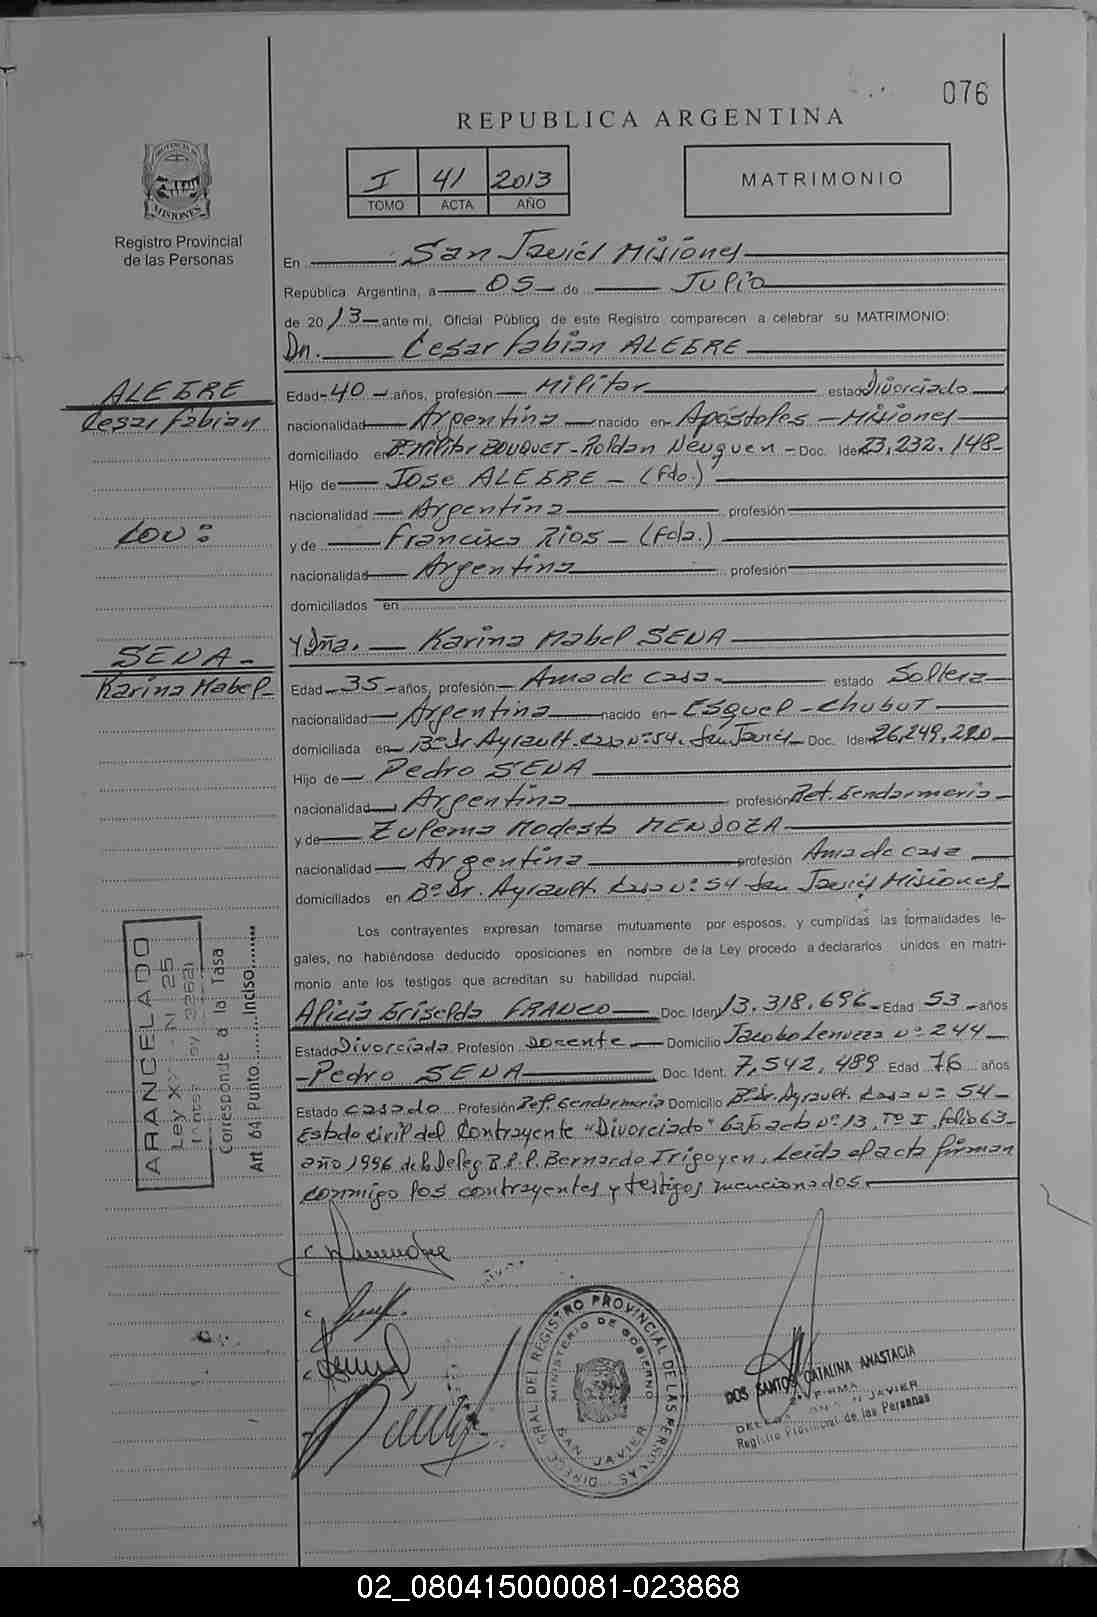 076
REPUBLICA ARGENTINA
PROVINCIA DE
MISIONES
Registro Provincial
de las Personas
I 41 2013
TOMO ACTA AÑO
MATRIMONIO
En San Javier Misiones
Republica Argentina, a 05 de Julio
de 2013 ante mi, Oficial Público de este Registro comparecen a celebrar su MATRIMONIO:
Dn. Cesar Fabian ALEGRE
ALEGRE
Cesar Fabian
Edad 40 años, profesión Militar estado Divorciado
nacionalidad Argentina nacido en Apóstoles - Misiones
domiciliado en Bº Militar BOUQUET - Roldan Neuquen - Doc. Iden 23,232.148
Hijo de Jose ALEGRE - (fdo.)
nacionalidad Argentina profesión
CON:
y de Francisca Rios - (fda.)
nacionalidad Argentina profesión
domiciliados en
Y Dña. Karina Mabel SENA
SENA -
Karina Mabel
Edad 35 años, profesión Ama de casa estado Soltera
nacionalidad Argentina nacido en Esquel - Chubut
domiciliada en Bº Dr Ayrault. casa nº 54. San Javier Doc. Iden 26,249,220
Hijo de Pedro SENA
nacionalidad Argentina profesión Ret. Gendarmeria
y de Zulema Modesta MENDOZA
nacionalidad Argentina profesión Ama de casa
domiciliados en Bº Dr. Ayrault. Casa nº 54 San Javier Misiones
Los contrayentes expresan tomarse mutuamente por esposos, y cumplidas las formalidades le-
gales, no habiéndose deducido oposiciones en nombre de la Ley procedo a declararlos unidos en matri-
monio ante los testigos que acreditan su habilidad nupcial.
Alicia Griselda FRANCO Doc. Ident 13.318.696 Edad 53 años
Estado Divorciada Profesión Docente Domicilio Jacobo nº 244
Pedro SENA Doc. Ident. 7.542.489 Edad 76 años
Estado casado Profesión Ret. Gendarmeria Domicilio Bº Dr. Ayrault. Casa nº 54
Estado civil del Contrayente "Divorciado" bajo acta nº 13, Tº I, folio 63
año 1996 de la Deleg R.P.P. Bernardo Irigoyen, Leida el acta firman
conmigo los contrayentes y testigos mencionados
ARANCELADO
Ley N 25
Corresponde a la Tasa
Art. 64 Punto Inciso
DIREC. GRAL. DEL REGISTRO PROVINCIAL DE LAS PERSONAS
MINISTERIO DE GOBIERNO
SAN JAVIER
DOS SANTOS CATALINA ANASTACIA
FIRMA
JAVIER
Registro Provincial de las Personas
02_080415000081-023868